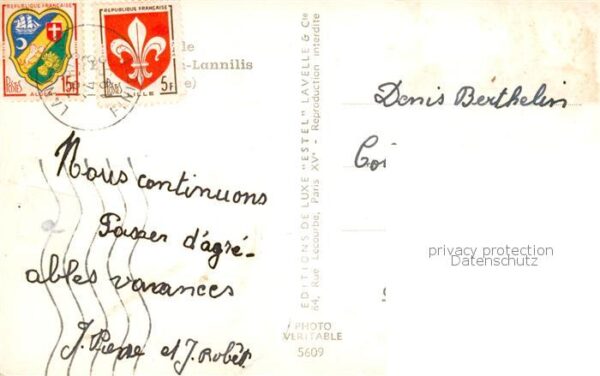 REPUBLIQUE FRANÇAISE
REPUBLIQUE FRANÇAISE
POSTES 15F
ALGER
POSTES 5F
LILLE
le
-Lannilis
e)
Nous continuons
Passer d'agré-
ables vacances
J. Pierre et J. Robët
EDITIONS DE LUXE "ESTEL" LAVELLE & Cie
64, Rue Lecourbe, Paris XVe - Reproduction interdite
PHOTO
VERITABLE
5609
Denis Berthelin
privacy protection
Datenschutz